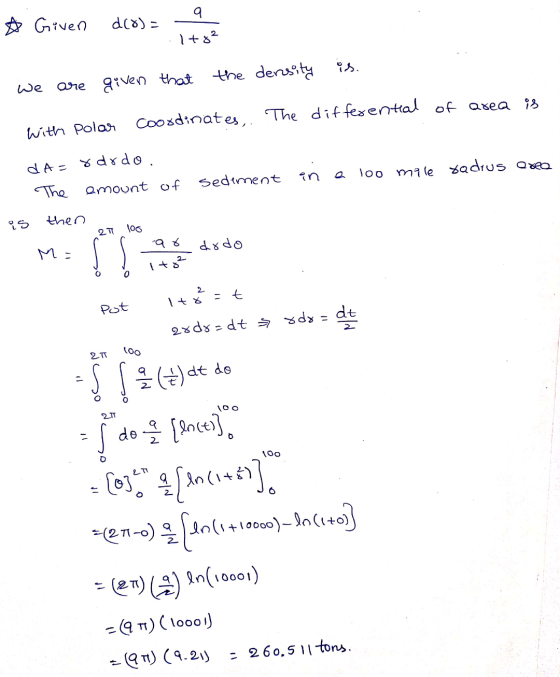 ☆ Given d(r) = 9 / (1+r²)
we are given that the density is.
With Polar Coordinates, The differential of area is
dA = r dr dθ.
The amount of sediment in a 100 mile radius area
is then
M = ∫₀^2π ∫₀^100 9r / (1+r²) dr dθ
Put 1+r² = t
2rdr = dt ⇒ rdr = dt/2
= ∫₀^2π ∫₀^100 9/2 (1/t) dt dθ
= ∫₀^2π dθ 9/2 [ln(t)]₀^100
= [θ]₀^2π 9/2 [ln(1+r²)]₀^100
=(2π-0) 9/2 [ln(1+10000)-ln(1+0)]
= (2π) (9/2) ln(10001)
=(9π) (10001)
=(9π) (9.21) = 260.511 tons.